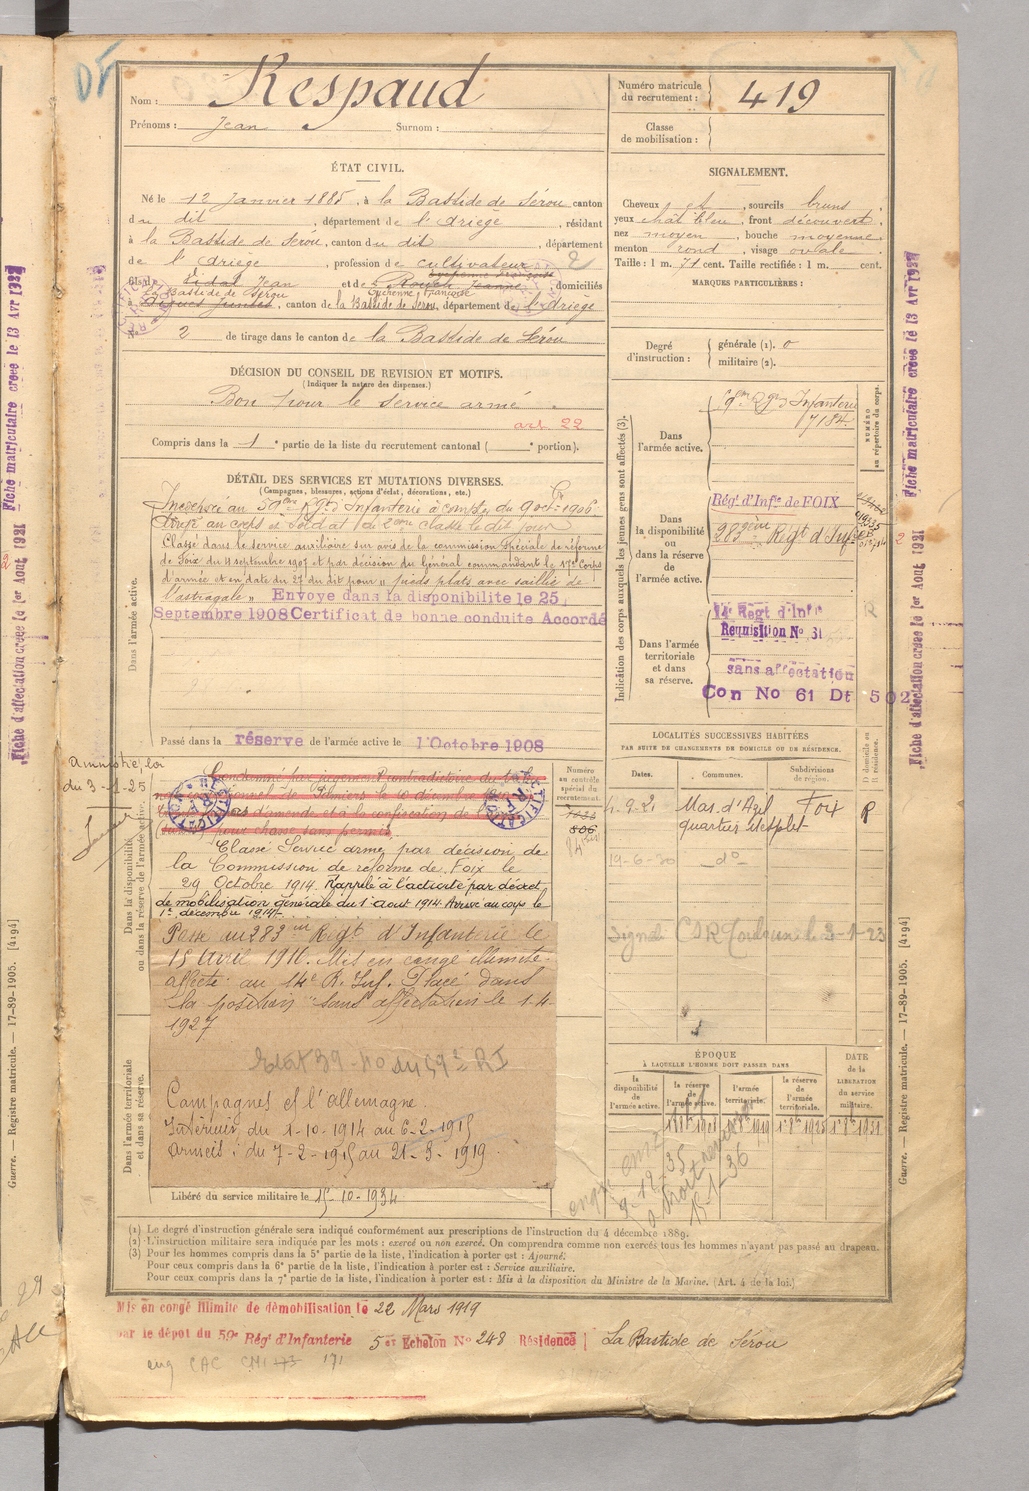 Nom : Respaud
Prénoms : Jean Surnom :
Numéro matricule du recrutement : 419
Classe de mobilisation :
ÉTAT CIVIL.
Né le 12 Janvier 1885, à la Bastide de Sérou canton
du dit, département de l'Ariège, résidant
à la Bastide de Sérou, canton du dit, département
de l'Ariège, profession de cultivateur 2
fils de Vidal Jean et de Jeanne, domiciliés
La Bastide de Sérou Françoise
à canton de la Bastide de Sérou, département de l'Ariège
N° 2 de tirage dans le canton de la Bastide de Sérou
SIGNALEMENT.
Cheveux et, sourcils bruns
yeux chât bleu, front découvert
nez moyen, bouche moyenne
menton rond, visage ovale
Taille : 1 m. 71 cent. Taille rectifiée : 1 m. cent.
MARQUES PARTICULIÈRES :
Degré d'instruction : générale (1). 0
militaire (2).
DÉCISION DU CONSEIL DE REVISION ET MOTIFS.
(Indiquer la nature des dispenses.)
Bon pour le service armé
art. 22
Compris dans la 1e partie de la liste du recrutement cantonal ( e portion).
DÉTAIL DES SERVICES ET MUTATIONS DIVERSES.
(Campagnes, blessures, actions d'éclat, décorations, etc.)
Dans l'armée active.
Incorporé au 59ème Rgt d'Infanterie à compter du 9 octbre 1906
Arrivé au corps et soldat de 2ème classe le dit jour
Classé dans le service auxiliaire sur avis de la commission spéciale de réforme
de Foix du 4 septembre 1907 et par décision du Général commandant le 17e Corps
d'armée et en date du 27 du dit pour " pieds plats avec saillie de
l'astragale " Envoye dans la disponibilite le 25
Septembre 1908 Certificat de bonne conduite Accordé
Passé dans la réserve de l'armée active le 1 Octobre 1908
Indication des corps auxquels les jeunes gens sont affectés (3).
NUMÉRO au répertoire du corps.
Dans l'armée active.
9em Rgt d'Infanterie
7184
Dans la disponibilité ou dans la réserve de l'armée active.
Régt d'Infie de FOIX
283ème Régt d'Inf
Dans l'armée territoriale et dans sa réserve.
14 Regt d'Infie
Reunisition N° 31
sans affectation
Con No 61 Dt 502
R
Amnistie loi
du 3-1-25
Dans la disponibilité ou dans la réserve de l'armée active.
Condamné par jugement contradictoire du tribu-
nal correctionnel de Pamiers le 10 décembre
d'amende et à la confiscation de
pour chasse sans permis
Classé Service armé par décision de
la Commission de réforme de Foix le
29 Octobre 1914. Rappelé à l'activité par décret
de mobilisation générale du 1 août 1914. Arrivé au corps le
1er décembre 1914
Passé au 283ème Régt d'Infanterie le
18 Avril 1916. Mis en congé illimité
affecté au 14e R. Inf. Placé dans
la position "sans affectation" le 1.4.
1927
Dans l'armée territoriale et dans sa réserve.
Campagnes ct l'allemagne
Intérieur, du 1-10-1914 au 6-2-1915
Armées : du 7-2-1915 au 21-3-1919.
Libéré du service militaire le 15-10-1934
Numéro au contrôle spécial du recrutement.
806
LOCALITÉS SUCCESSIVES HABITÉES
PAR SUITE DE CHANGEMENTS DE DOMICILE OU DE RÉSIDENCE.
Dates. Communes. Subdivisions de région. D domicile ou R résidence.
4-9-21 Mas-d'Azil Foix R
quartier
19-6-30 do
ÉPOQUE
À LAQUELLE L'HOMME DOIT PASSER DANS
DATE DE LA LIBÉRATION du service militaire.
la disponibilité de l'armée active.
la réserve de l'armée active.
l'armée territoriale.
la réserve de l'armée territoriale.
(1) Le degré d'instruction générale sera indiqué conformément aux prescriptions de l'instruction du 4 décembre 1889.
(2) L'instruction militaire sera indiquée par les mots : exercé ou non exercé. On comprendra comme non exercés tous les hommes n'ayant pas passé au drapeau.
(3) Pour les hommes compris dans la 5e partie de la liste, l'indication à porter est : Ajourné.
Pour ceux compris dans la 6e partie de la liste, l'indication à porter est : Service auxiliaire.
Pour ceux compris dans la 7e partie de la liste, l'indication à porter est : Mis à la disposition du Ministre de la Marine. (Art. 4 de la loi.)
Mis en congé illimité de démobilisation le 22 Mars 1919
par le dépôt du 59e Régt d'Infanterie 5 e Échelon N° 248 Résidence La Bastide de Sérou
Guerre. — Registre matricule. — 17-89-1905. [4194]
Guerre. — Registre matricule. — 17-89-1905. [4194]
Fiche matriculaire creee le 13 Avr 1927
Fiche d'affectation creee le 1er Aout 1921
Fiche matriculaire creee le 13 Avr 1927
Fiche d'affectation creee le 1er Aout 1921